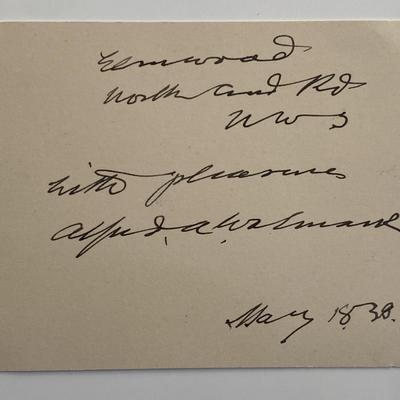 Elmwood
North End Rd
NW3
With pleasure
Alfred.A.Wolmark
May 18.38.